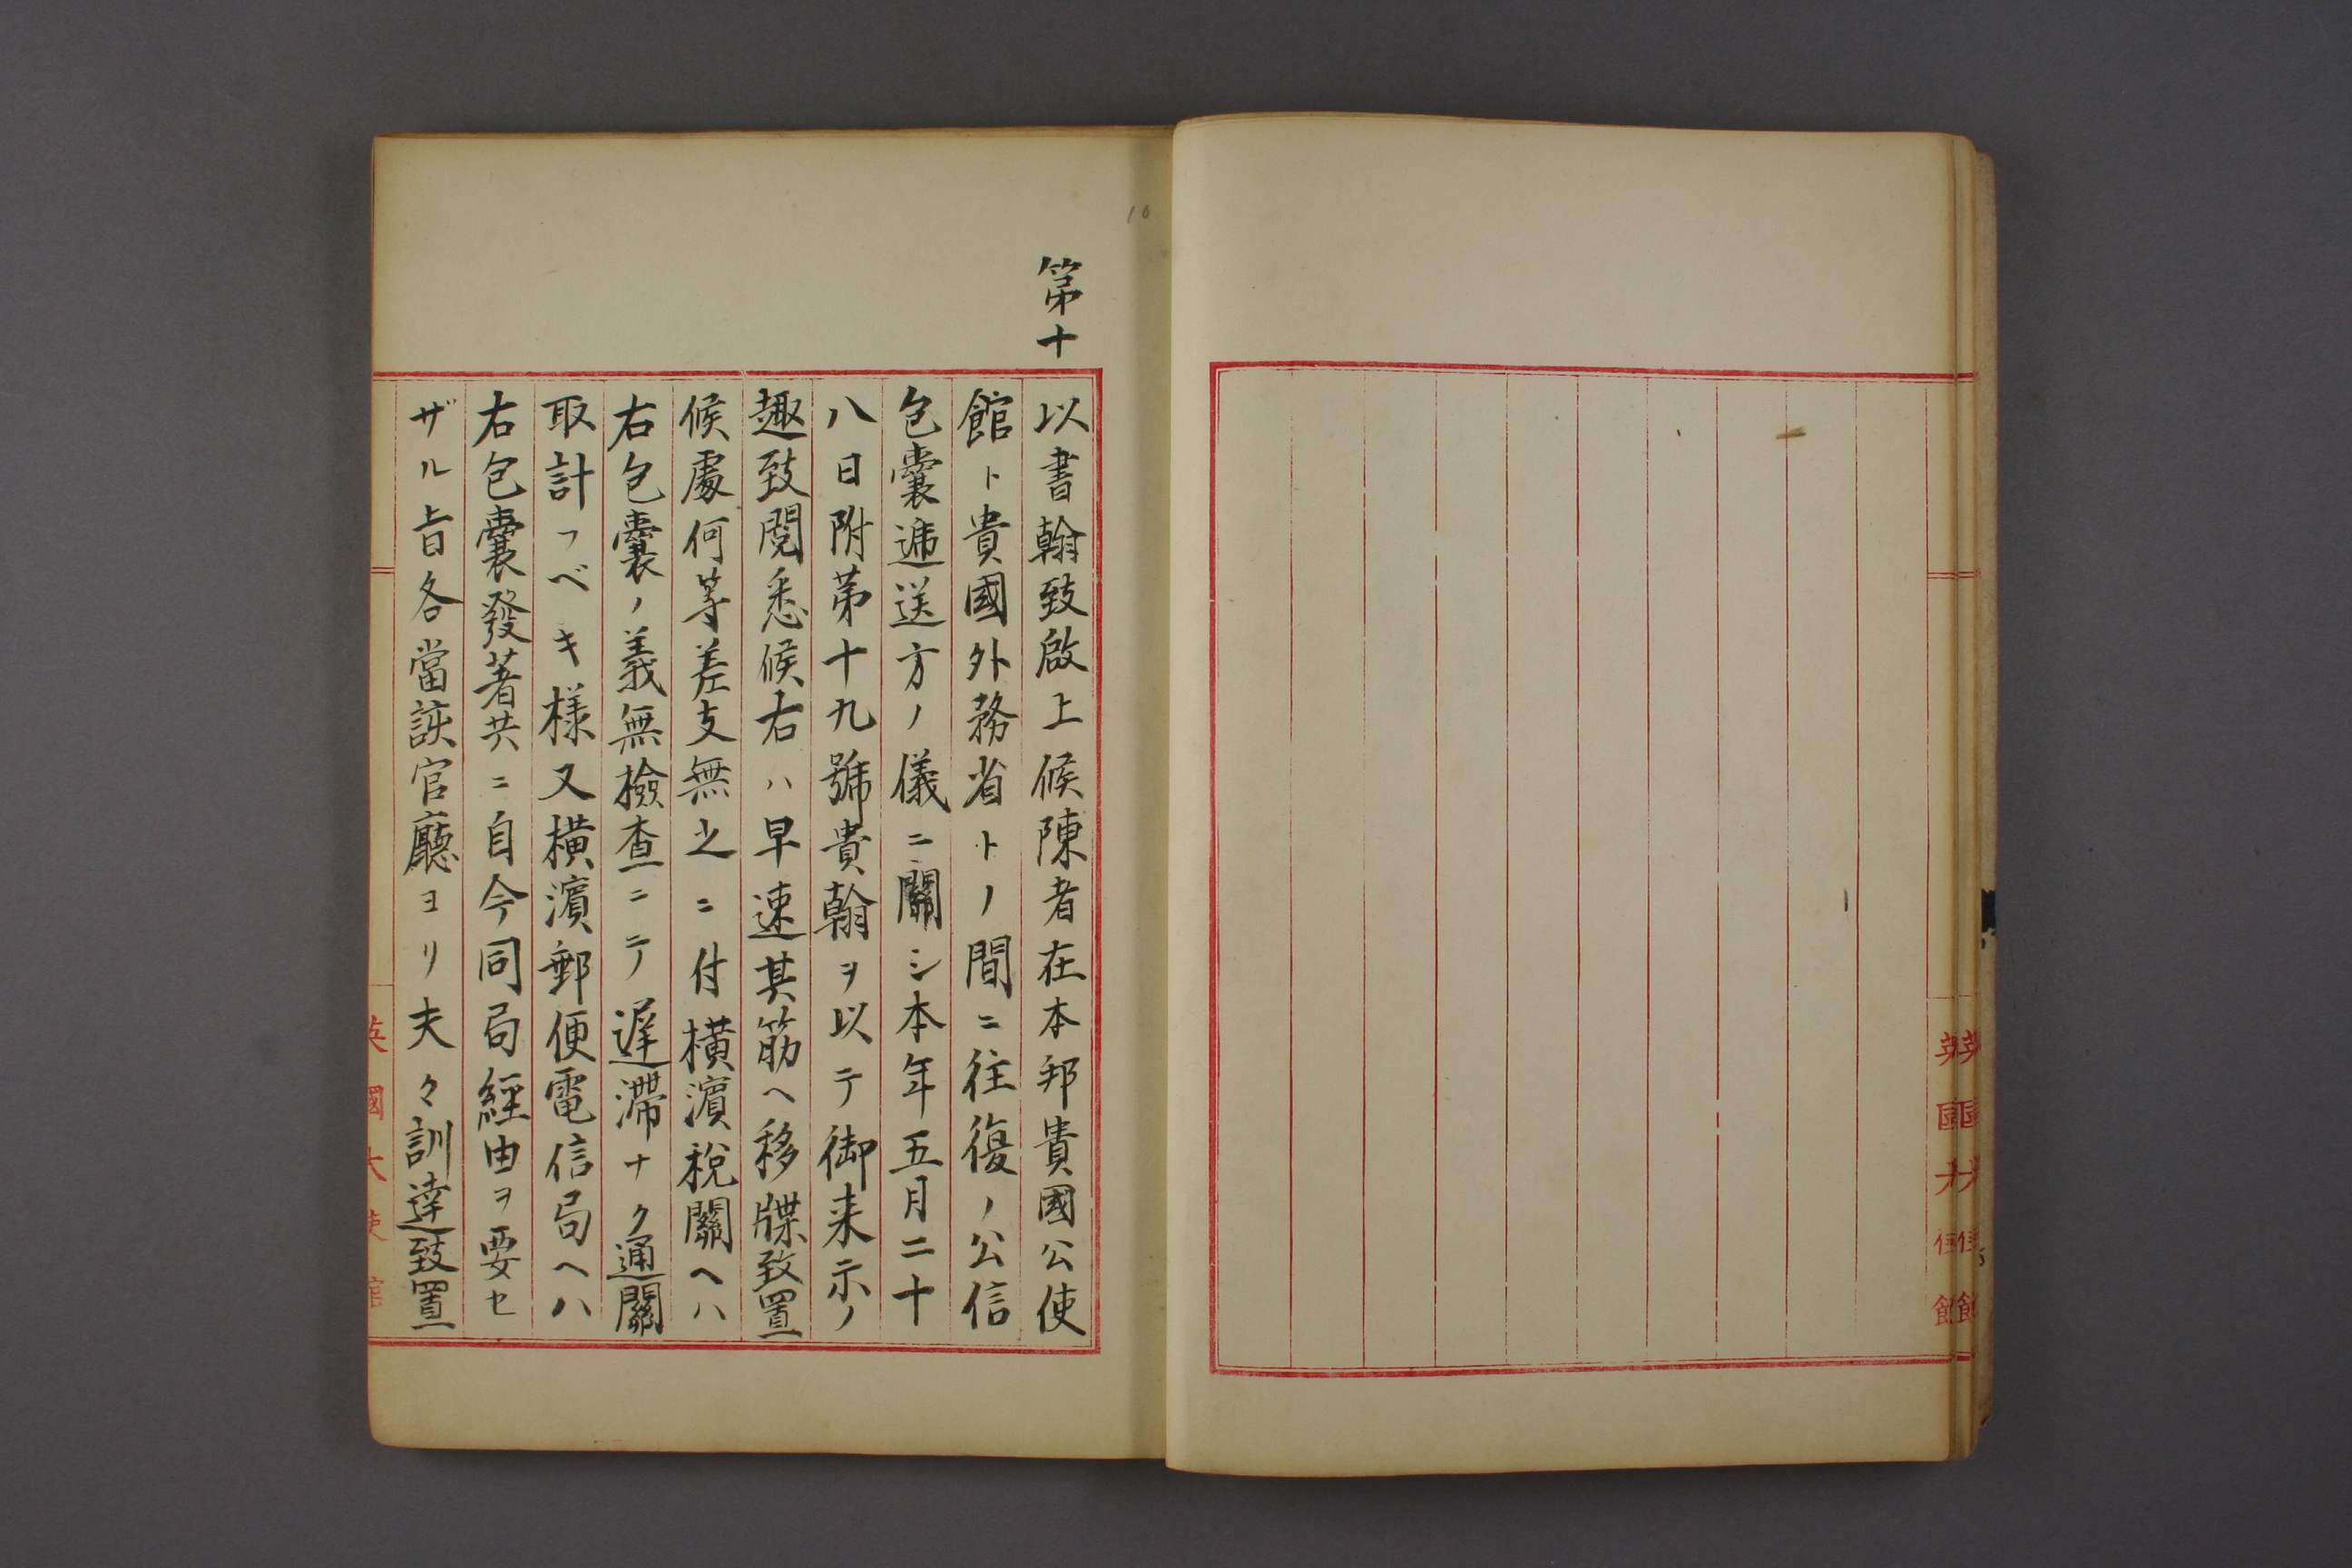 英國大使館
10
第十
以書翰致啟上候陳者在本邦貴國公使
館ト貴國外務省トノ間ニ往復ノ公信
包囊遞送方ノ儀ニ關シ本年五月二十
八日附第十九號貴翰ヲ以テ御来示ノ
趣致閲悉候右ハ早速其筋ヘ移牒致置
候處何等差支無之ニ付橫濱稅關ヘハ
右包囊ノ義無撿査ニテ遲滯ナク通關
取計フベキ樣又橫濱郵便電信局ヘハ
右包囊發著共ニ自今同局經由ヲ要セ
ザル旨各當該官廳ヨリ夫々訓達致置
英國大使館